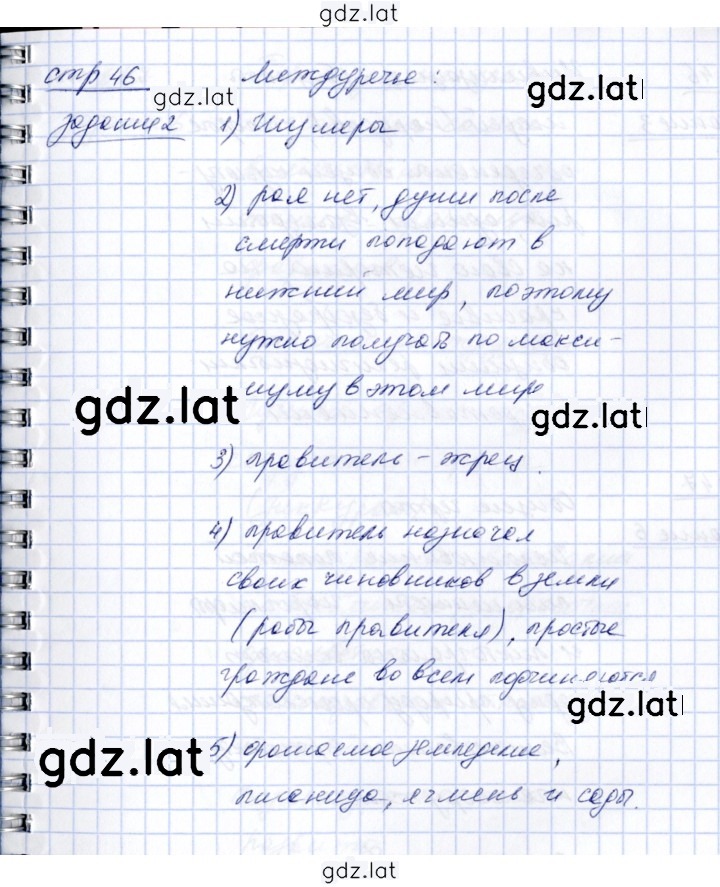 gdz.lat
стр 46 Междуречье:
gdz.lat gdz.lat
задание 2 1) Шумеры
2) рая нет, души после
смерти попадают в
нижний мир, поэтому
gdz.lat
нужно получать по макси-
муму в этом мире
gdz.lat gdz.lat
3) правитель - жрец.
4) правитель назначал
своих чиновников в земли
(рабы правителя), простые
gdz.lat
граждане во всем подчиняются
gdz.lat
5) орошаемое земледелие,
пшеница, ячмень и сады.
gdz.lat
gdz.lat